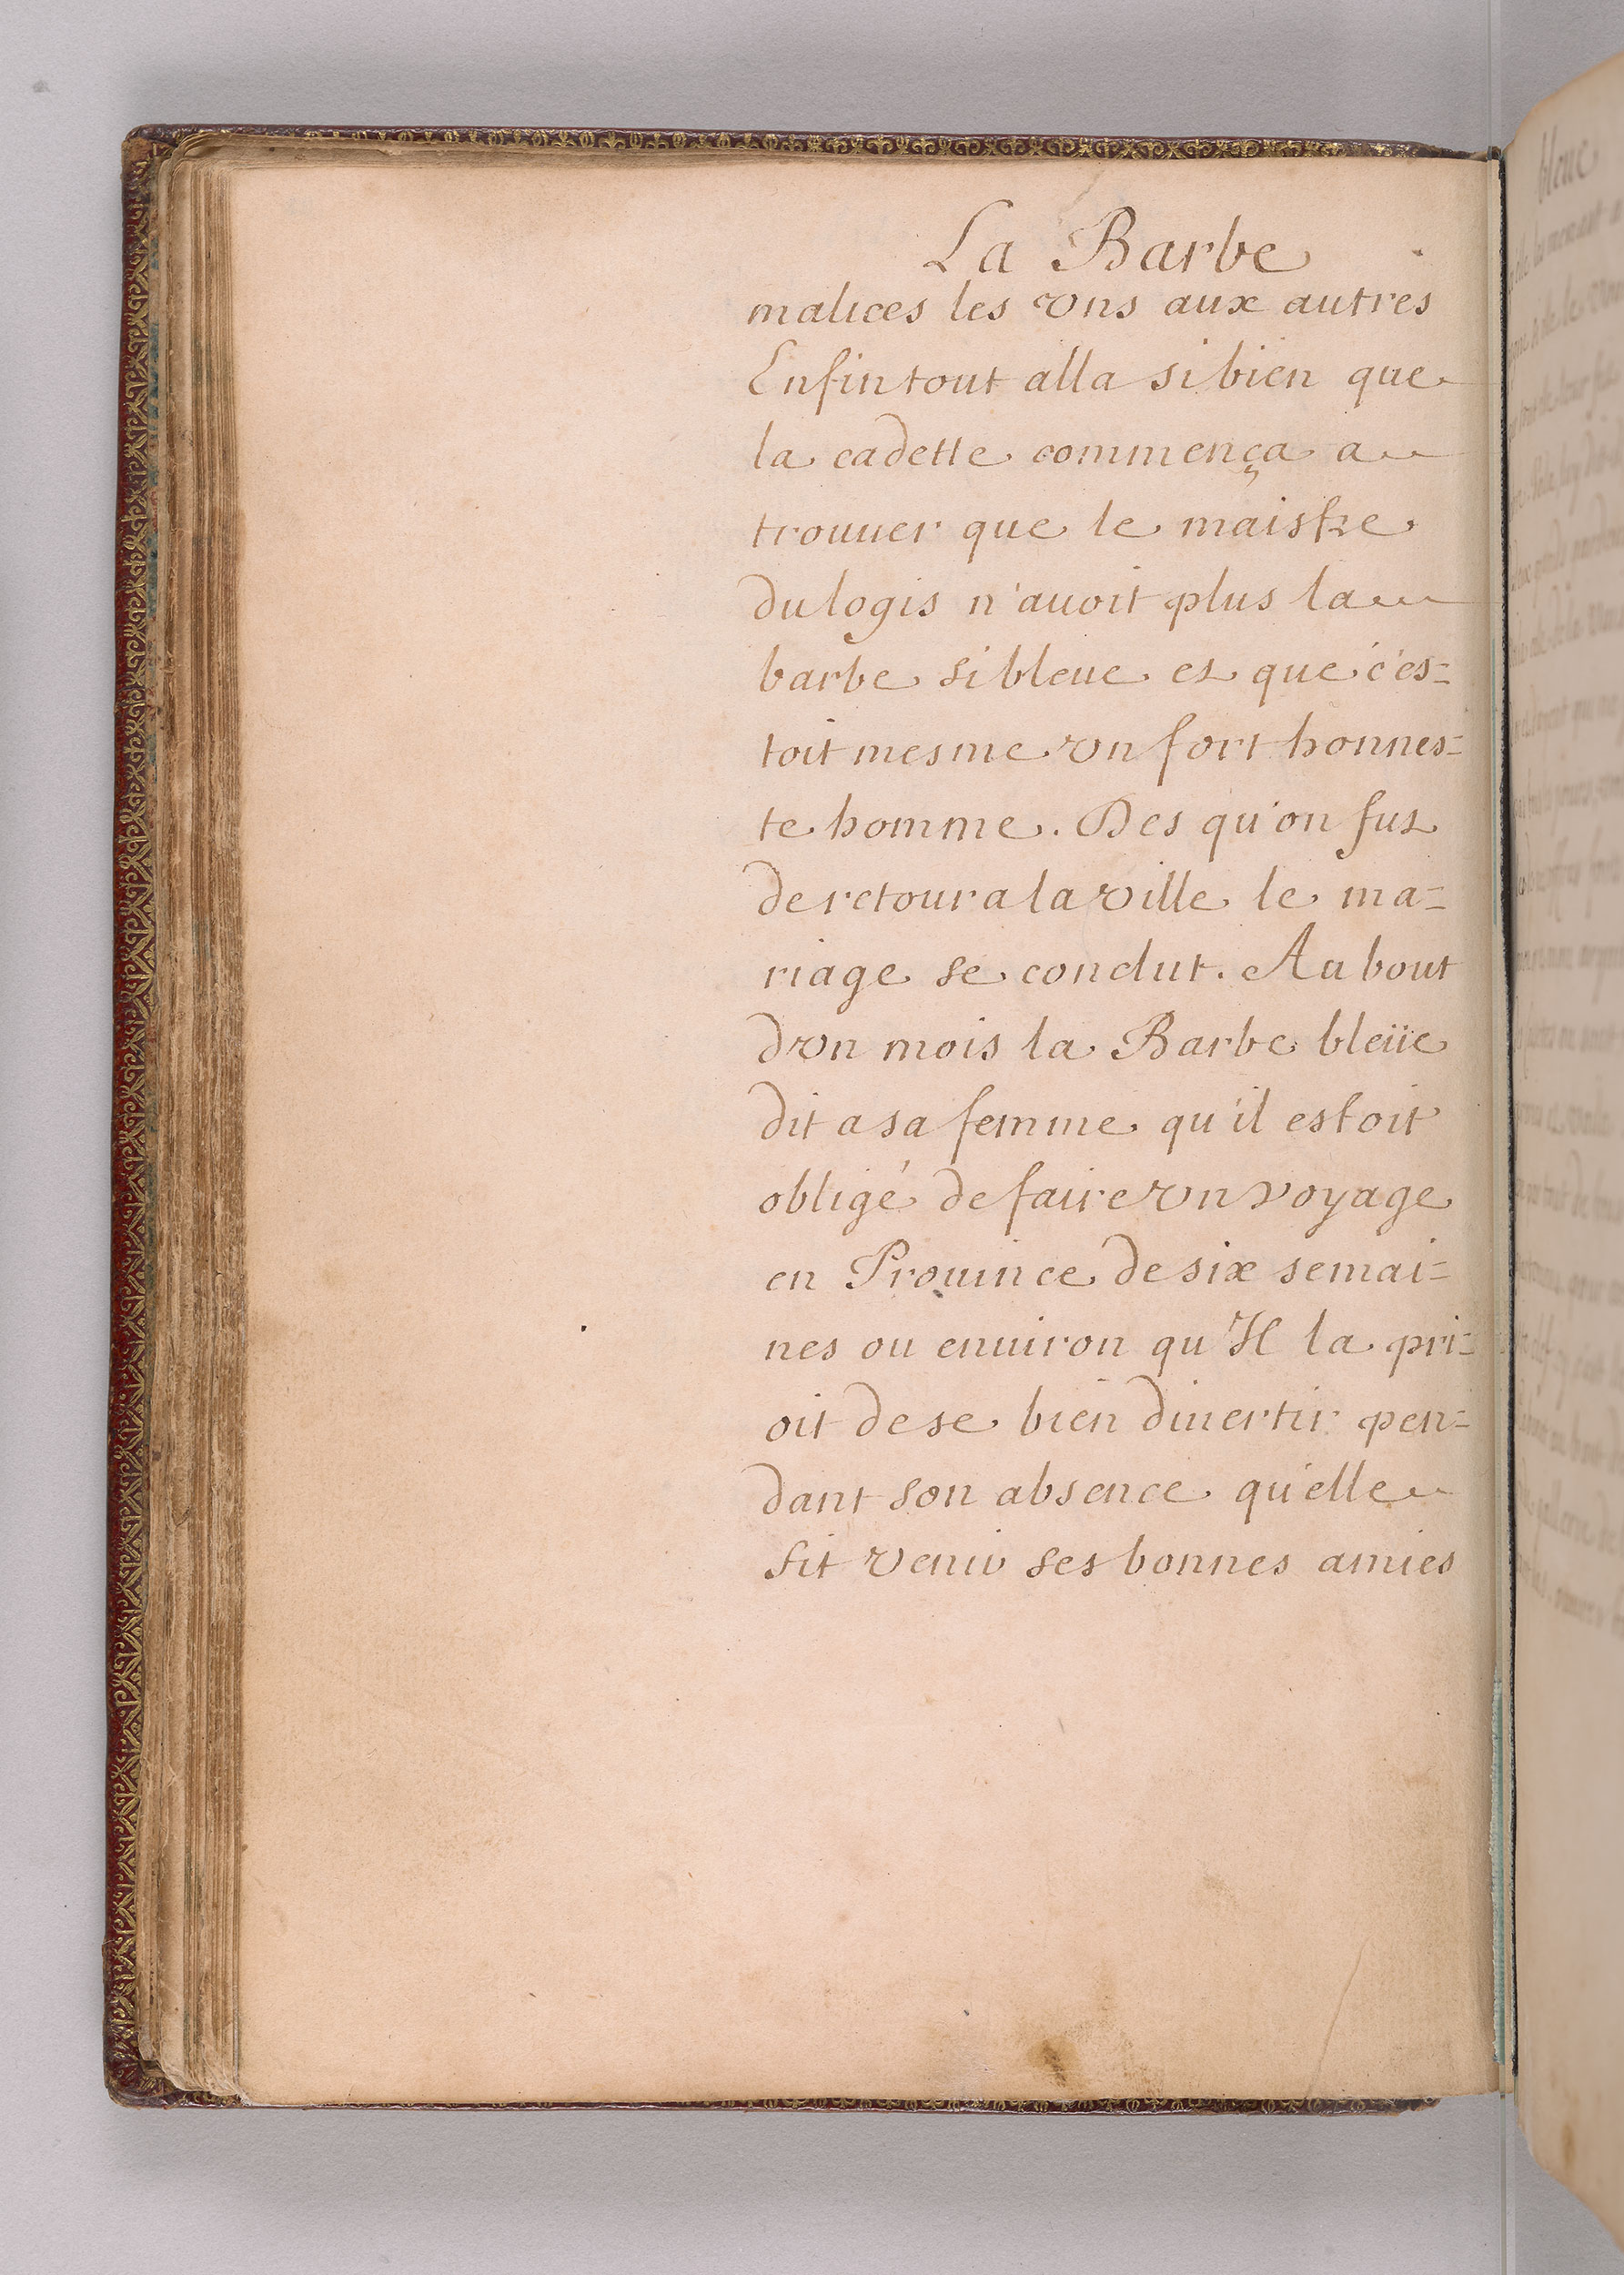 La Barbe
malices les vns aux autres
Enfin tout alla si bien que
la cadette commença a
trouuer que le maistre
du logis n'auoit plus la
barbe si bleue et que c'es=
toit mesme vn fort honnes=
te homme. Des qu'on fut
de retour a la ville le ma=
riage se conclut. Au bout
d'vn mois la Barbe bleüe
dit a sa femme qu'il estoit
obligé de faire vn voyage
en Prouince de six semai=
nes ou enuiron qu'Il la pri=
oit de se bien diuertir pen=
dant son absence qu'elle
fit venir ses bonnes amies
bleue